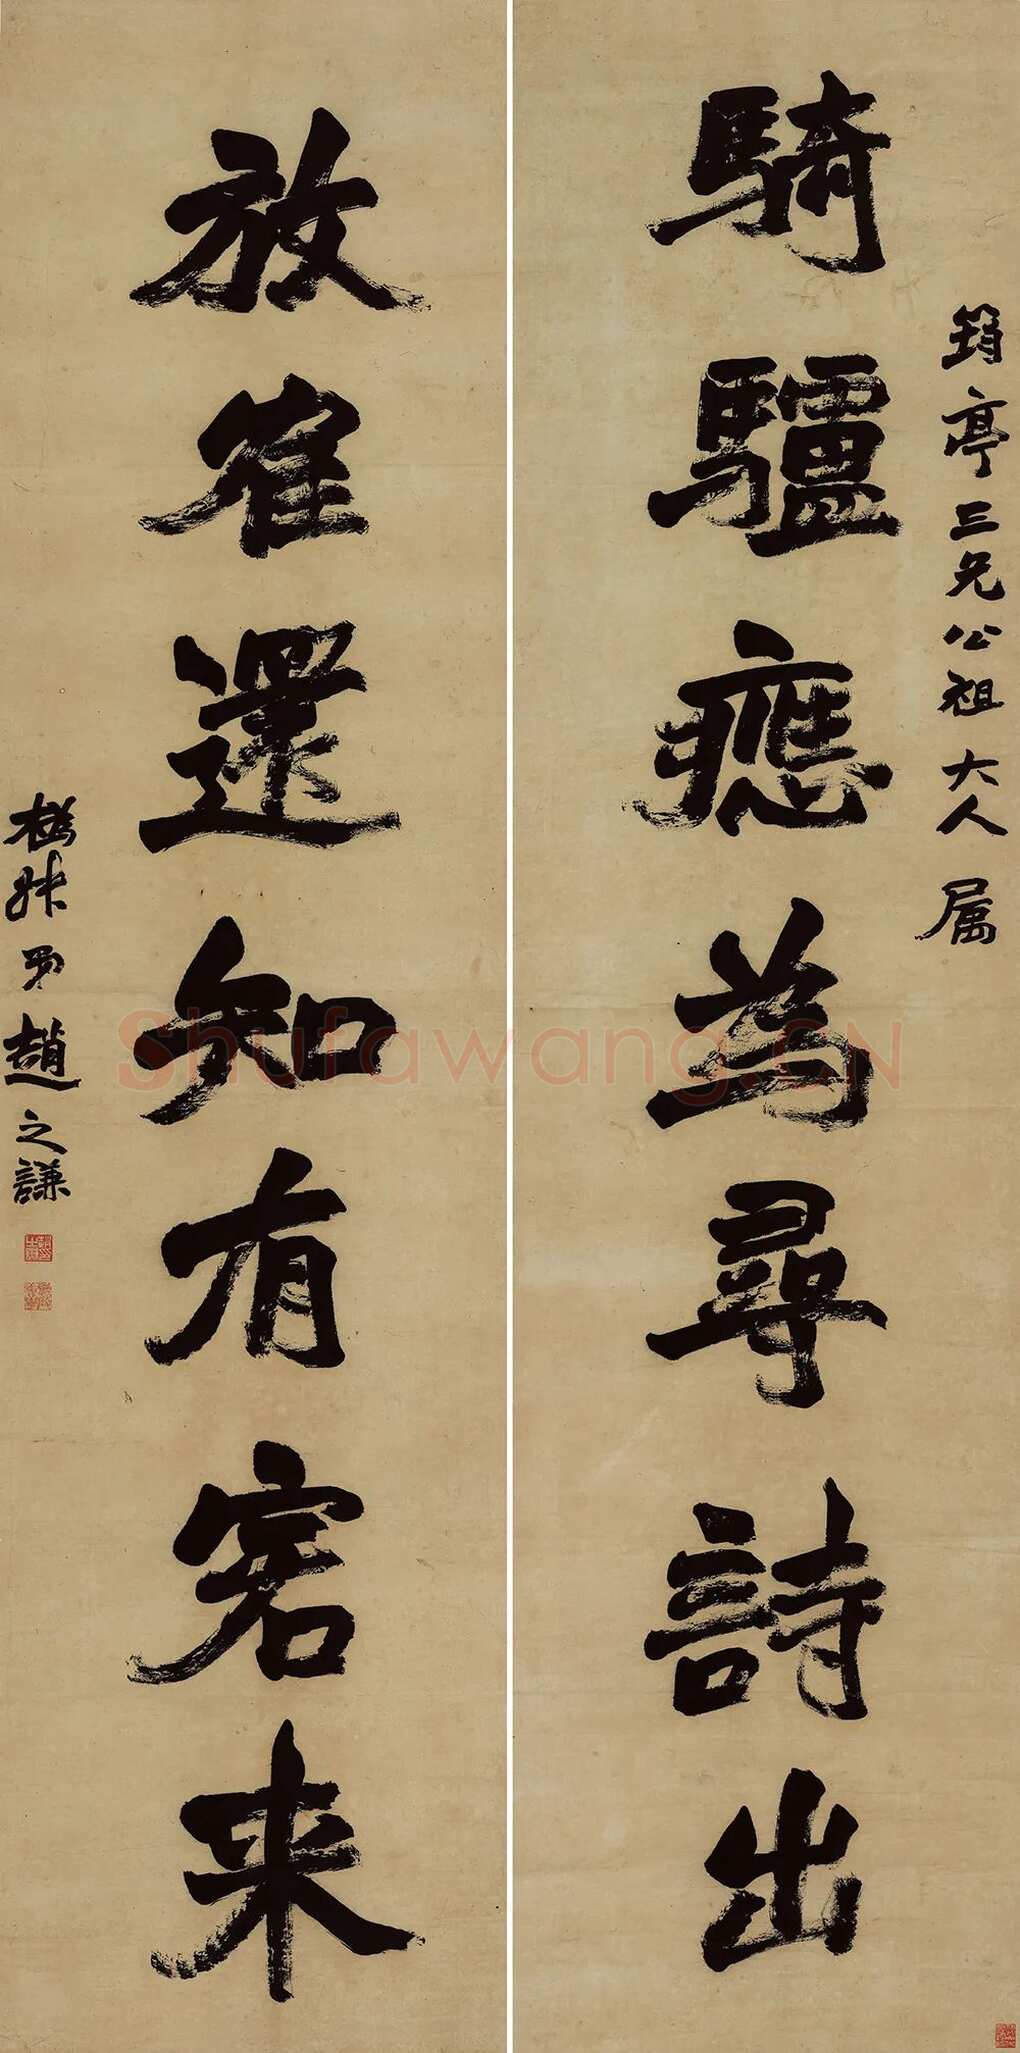 筠亭三兄公祖大人属
騎驢應為尋詩出
放隺還知有客来
撝叔弟趙之謙
Shufawang.CN